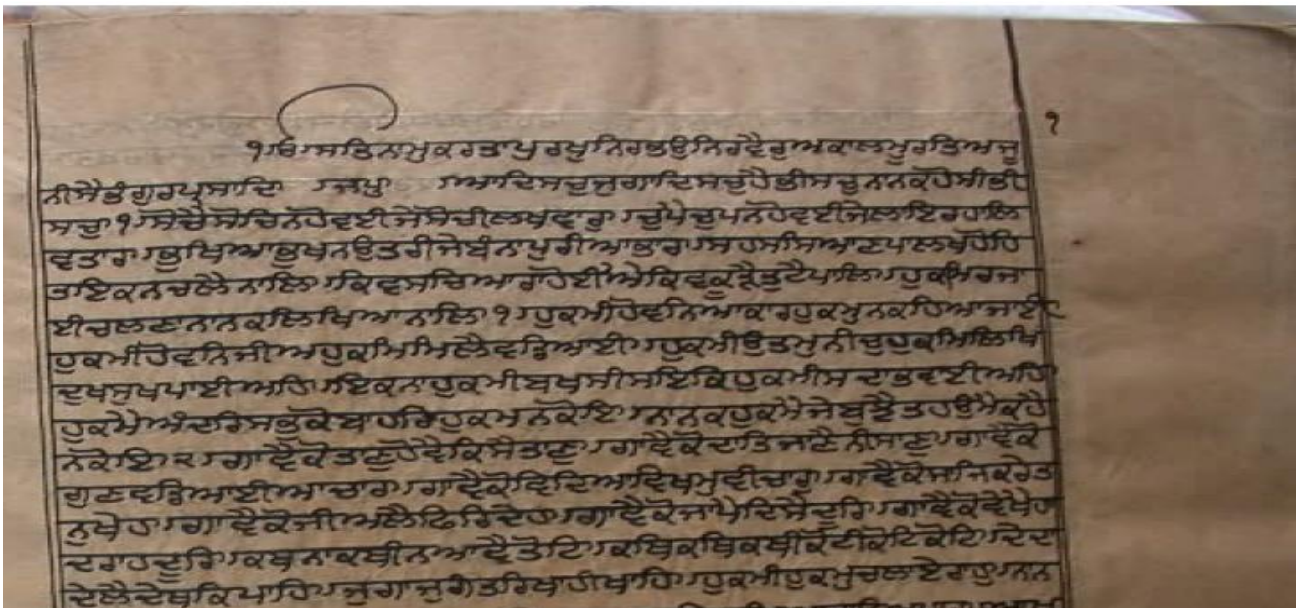 ੧
੧ੴ ਸਤਿਨਾਮੁਕਰਤਾਪੁਰਖੁਨਿਰਭਉਨਿਰਵੈਰੁਅਕਾਲਮੂਰਤਿਅਜੂ
ਨੀਸੈਭੰਗੁਰਪ੍ਰਸਾਦਿ ।ਜਪੁ ।ਆਦਿਸਚੁਜੁਗਾਦਿਸਚੁਹੈਭੀਸਚੁਨਾਨਕਹੋਸੀਭੀ
ਸਚੁ।੧।ਸੋਚੈਸੋਚਿਨਹੋਵਈਜੇਸੋਚੀਲਖਵਾਰ।ਚੁਪੈਚੁਪਨਹੋਵਈਜੇਲਾਇਰਹਾਲਿ
ਵਤਾਰ।ਭੁਖਿਆਭੁਖਨਉਤਰੀਜੇਬੰਨਾਪੁਰੀਆਭਾਰ।ਸਹਸਸਿਆਣਪਾਲਖਹੋਹਿ
ਤਾਇਕਨਚਲੈਨਾਲਿ।ਕਿਵਸਚਿਆਰਾਹੋਈਐਕਿਵਕੂੜੈਤੁਟੈਪਾਲਿ।ਹੁਕਮਿਰਜਾ
ਈਚਲਣਾਨਾਨਕਲਿਖਿਆਨਾਲਿ੧।ਹੁਕਮੀਹੋਵਨਿਆਕਾਰਹੁਕਮੁਨਕਹਿਆਜਾਈ
ਹੁਕਮੀਹੋਵਨਿਜੀਅਹੁਕਮਿਮਿਲੈਵਡਿਆਈ।ਹੁਕਮੀਉਤਮੁਨੀਚੁਹੁਕਮਿਲਿਖਿ
ਦੁਖਸੁਖਪਾਈਅਹਿ।ਇਕਨਾਹੁਕਮੀਬਖਸੀਸਇਕਿਹੁਕਮੀਸਦਾਭਵਾਈਅਹਿ
ਹੁਕਮੈਅੰਦਰਿਸਭੁਕੋਬਾਹਰਿਹੁਕਮਨਕੋਇ।ਨਾਨਕਹੁਕਮੈਜੇਬੁਝੈਤਹਉਮੈਕਹੈ
ਨਕੋਇ੨।ਗਾਵੈਕੋਤਾਣੁਹੋਵੈਕਿਸੈਤਾਣੁ।ਗਾਵੈਕੋਦਾਤਿਜਾਣੈਨੀਸਾਣੁ।ਗਾਵੈਕੋ
ਗੁਣਵਡਿਆਈਆਚਾਰ।ਗਾਵੈਕੋਵਿਦਿਆਵਿਖਮੁਵੀਚਾਰੁ।ਗਾਵੈਕੋਸਾਜਿਕਰੇਤ
ਨੁਖੇਹ।ਗਾਵੈਕੋਜੀਅਲੈਫਿਰਿਦੇਹ।ਗਾਵੈਕੋਜਾਪੈਦਿਸੈਦੂਰਿ।ਗਾਵੈਕੋਵੇਖੈਹਾ
ਦਰਾਹਦੂਰਿ।ਕਥਨਾਕਥੀਨਆਵੈਤੋਟਿ।ਕਥਿਕਥਿਕਥੀਕੋਟੀਕੋਟਿਕੋਟਿ।ਦੇਦਾ
ਦੇਲੈਦੇਥਕਿਪਾਹਿ।ਜੁਗਾਜੁਗੰਤਰਿਖਾਹੀਖਾਹਿ।ਹੁਕਮੀਹੁਕਮੁਚਲਾਏਰਾਹੁ।ਨਾਨ